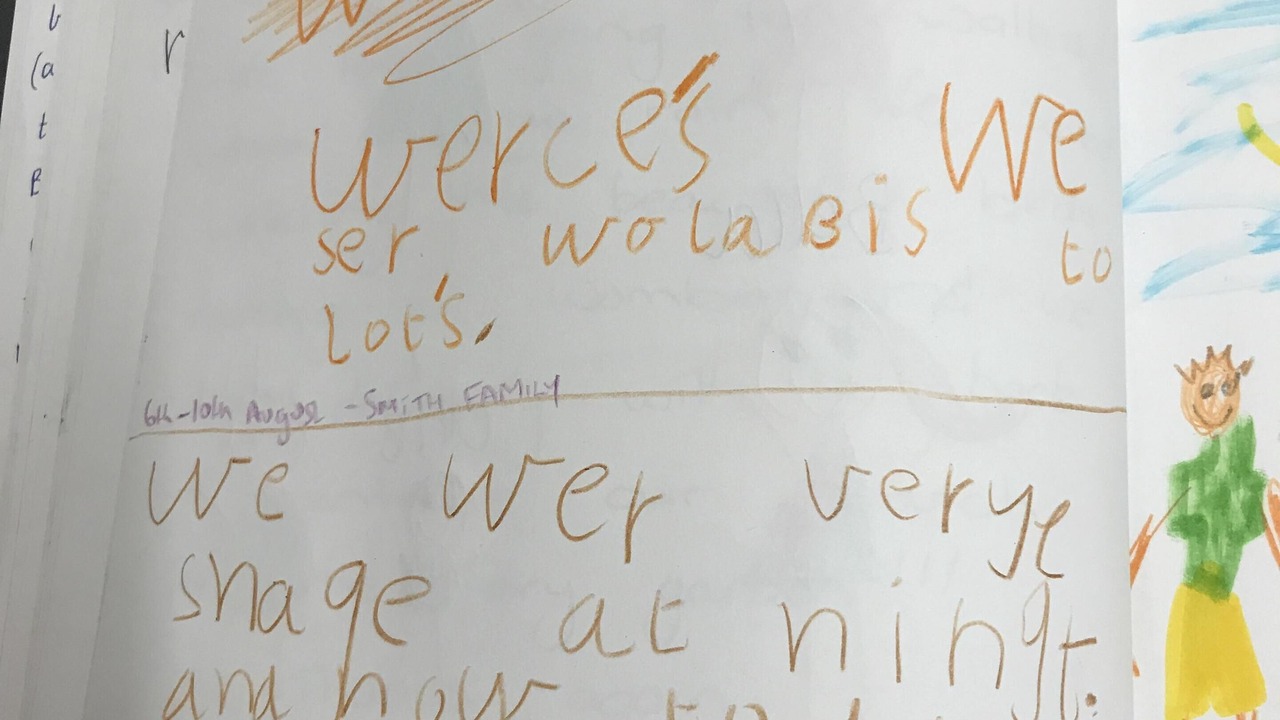 r
werce's We
ser wolaBis to
lot's.
6th-10th August - SMITH FAMILY
we wer verye
snage at ningt.
and how